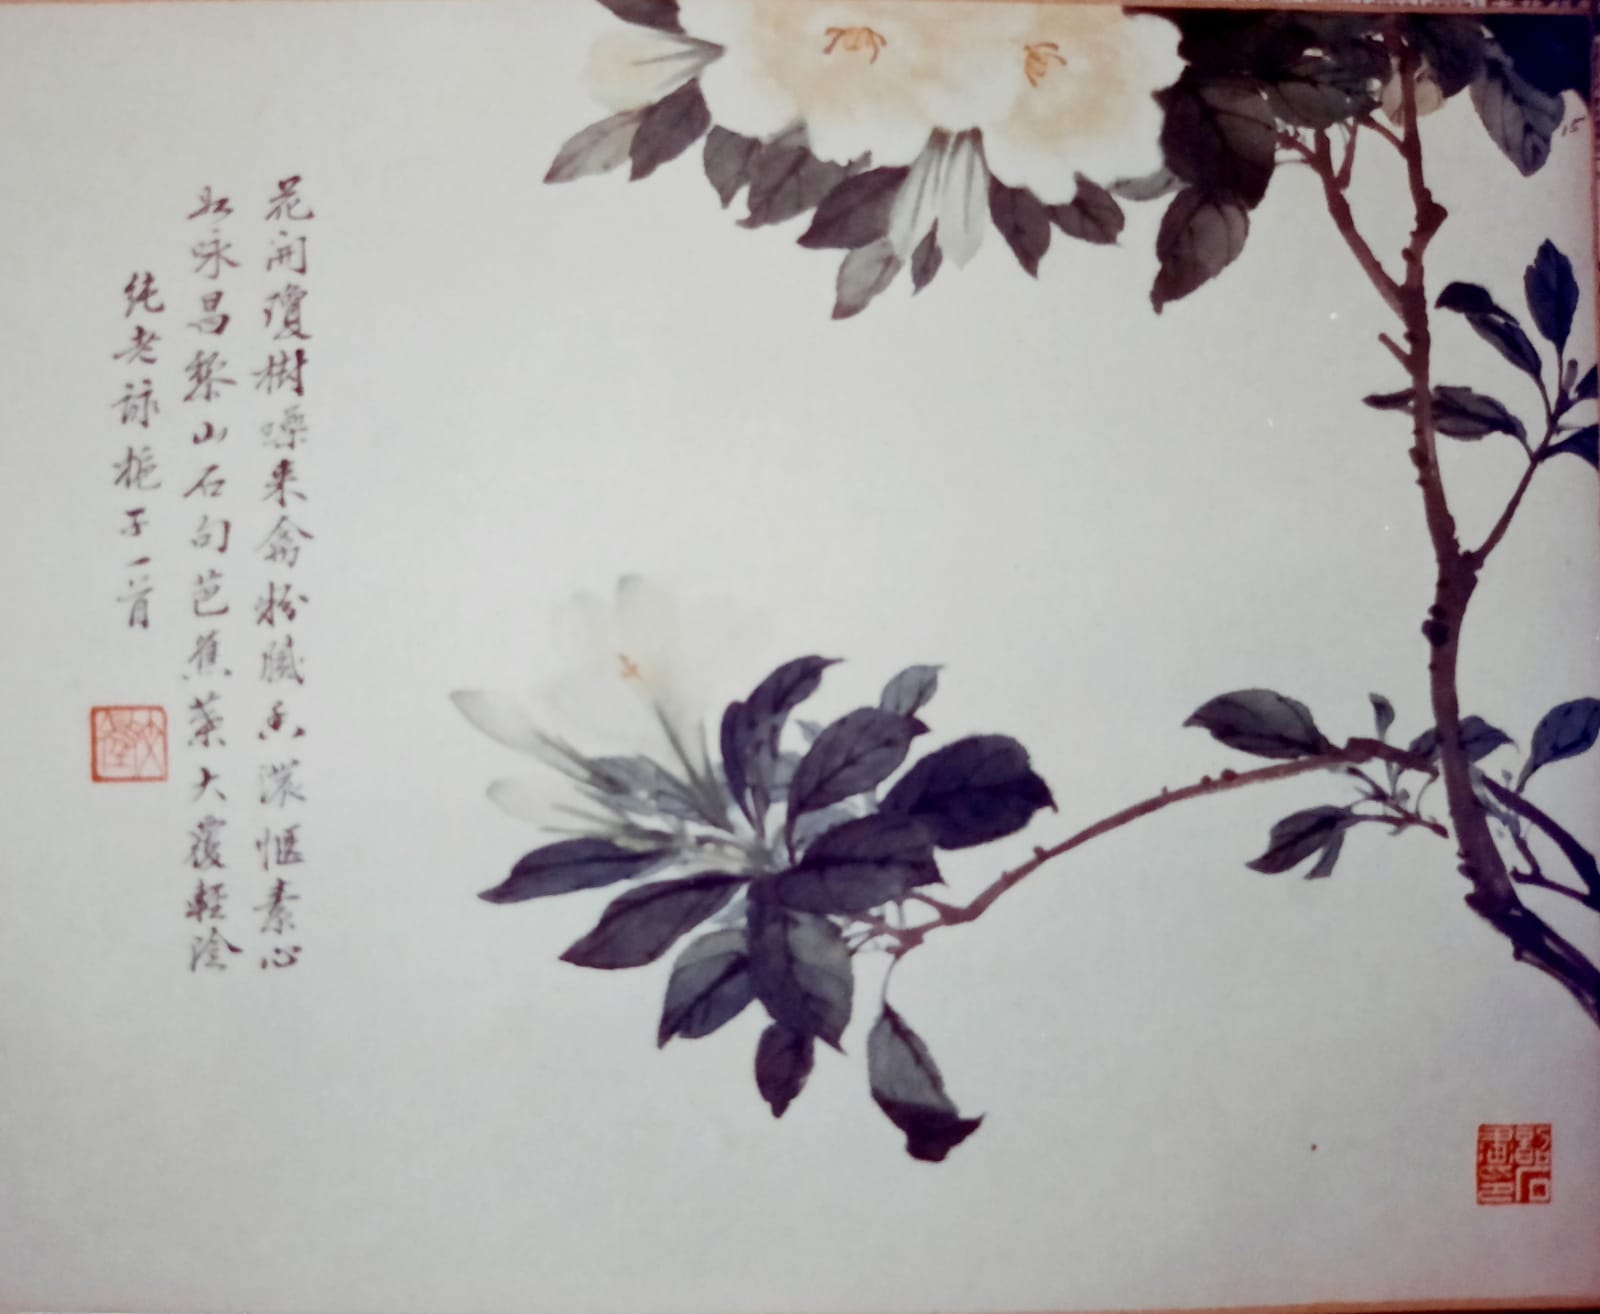 花開瓊樹噪來禽粉膩香濃愜素心
咏昌黎山石句芭蕉葉大覆輕陰
純老詠梔子一首
15